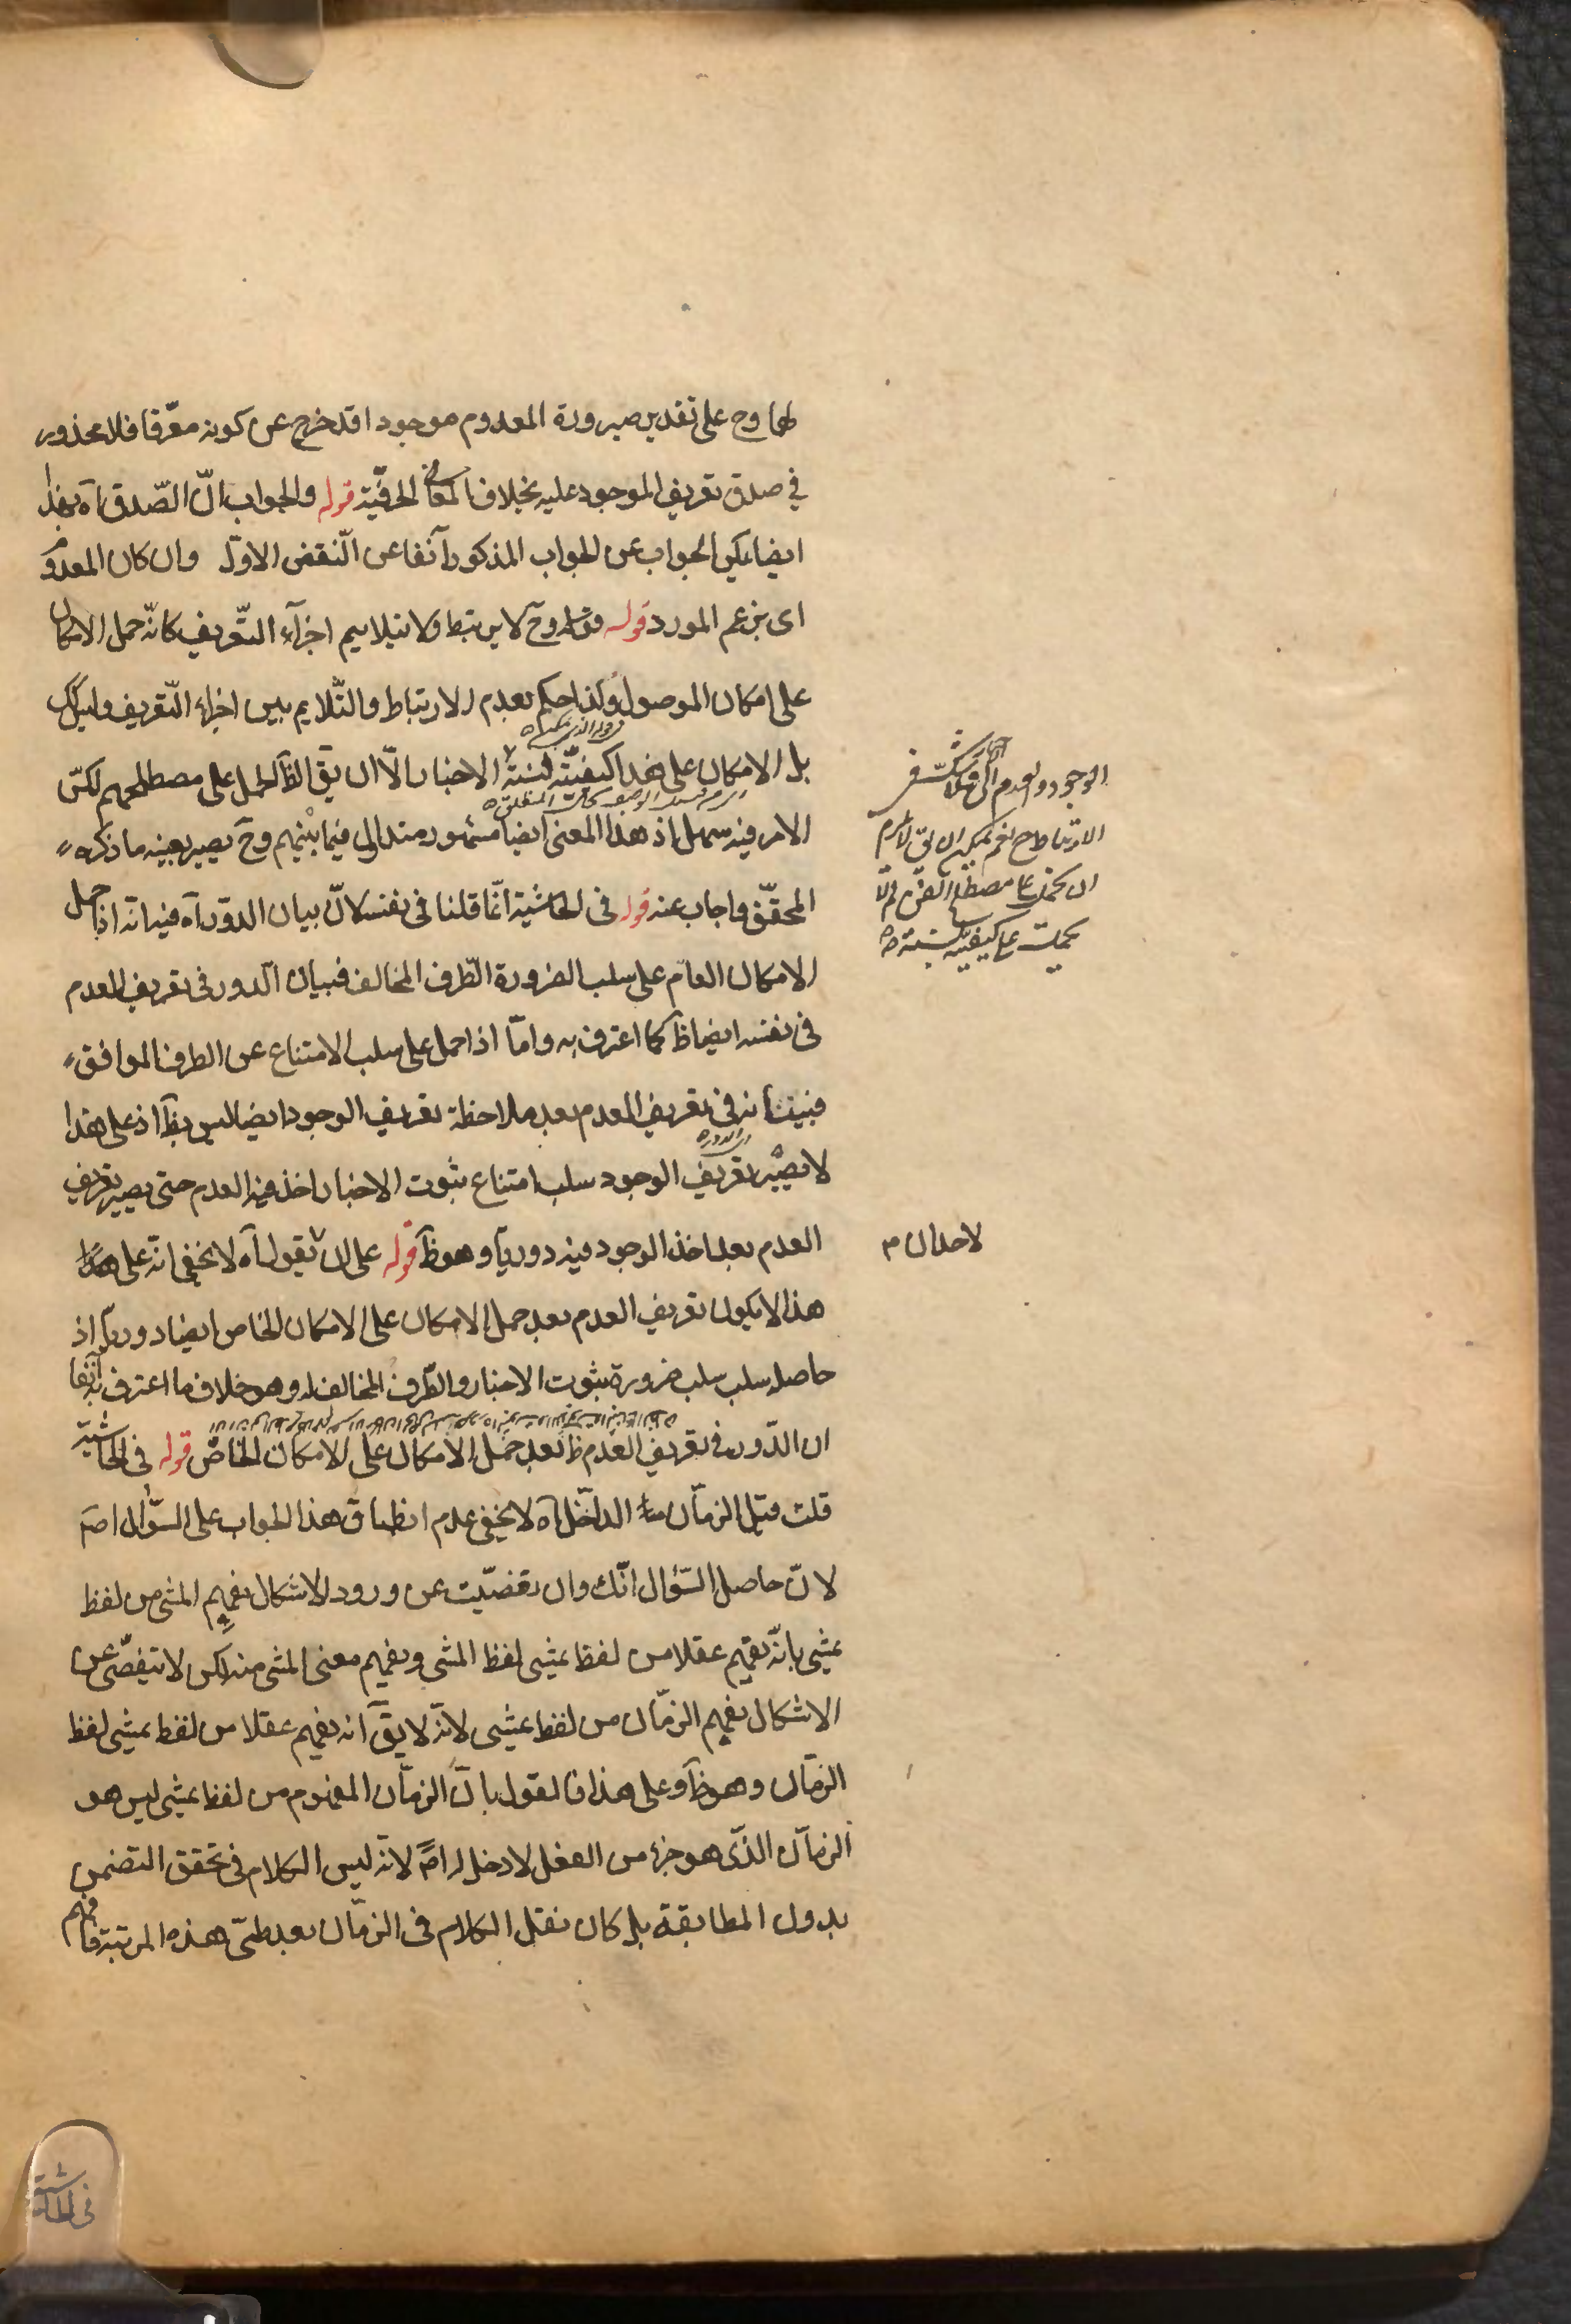 لهما وح على تقدير صيرورة المعدوم موجودا قد خرج عن كونه معرّفا فلا محذور
فى صدق تعريف الموجود عليه بخلاف المعانى الحرفيّة قوله والجواب انّ الصّدق آه بهذا
ايضا يمكن الجواب عن الجواب المذكور آنفا عن النّقض الاوّل وان كان المعدوم
اى بزعم المورد قوله وح لا يرتبط ولا يتلايم اجزآء التّعريف كانّه حمل الامكان
على امكان الموصول ولذا حكم بعدم الارتباط والتّلايم بين اجزاء التّعريف وليس كك
بل الامكان على هذا كيفيّة لنسبة الاخبار الّا ان يق الظّ الحمل على مصطلحهم لكنّ
الامر فيه سهل اذ هذا المعنى ايضا مشهور متداول فيما بينهم وح يصير بعينه ما ذكره
المحقّق واجاب عنه قوله فى الحاشية انّما قلنا فى نفسه لانّ بيان الدّور آه فيه انّه اذا حمل
الامكان العامّ على سلب الضرورة الطّرف المخالف فبيان الدور فى تعريف العدم
فى نفسه ايضا ظ كما اعترف به وامّا اذا حمل على سلب الامتناع عن الطرف الموافق
فبيانه فى تعريف العدم بعد ملاحظة تعريف الوجود ايضا ليس بظ اذ على هذا
لا يصير تعريف الوجود سلب امتناع ثبوت الاخبار اخذ فيه العدم حتى يصير تعريف
العدم بعد اخذ الوجود فيه دوريّا وهو ظ قوله على ان نقول آه لا يخفى انّه على هذا
هذا لا يكون تعريف العدم بعد حمل الامكان على الامكان الخاص ايضا دوريّا اذ
حاصله سلب سلب ضرورة ثبوت الاخبار والطّرف المخالف له وهو خلاف ما اعترف به آنفا
ان الدّور فى تعريف العدم ظ بعد حمل الامكان على الامكان الخاصّ قوله فى الحاشية
قلت قبل الزمان الداخل آه لا يخفى عدم انطباق هذا الجواب على السّؤال اصم
لانّ حاصل السّؤال انّك وان تفصّيت عن ورود الاشكال بفهم المشى من لفظ
يمشى بانّه يفهم عقلا من لفظ يمشى لفظ المشى ويفهم معنى المشى منه لكن لا تتفصّى عن
الاشكال بفهم الزمان من لفظ يمشى لانّه لا يق انه يفهم عقلا من لفظ يمشى لفظ
الزمان وهو ظ وعلى هذا فالقول بانّ الزمان المفهوم من لفظ يمشى ليس هو
الزمان الذّى هو جزء من الفعل لا دخل له اصم لانّه ليس الكلام فى تحقق التضمن
بدون المطابقة بل كان نقل الكلام فى الزمان بعد طىّ هذه المرتبة فافهم
الوجود والعدم
الارتباط ح نعم يمكن ان يق
ان يحمل على مصطلح
كيفيّة نسبة
لاحدان م
فى الحاشية